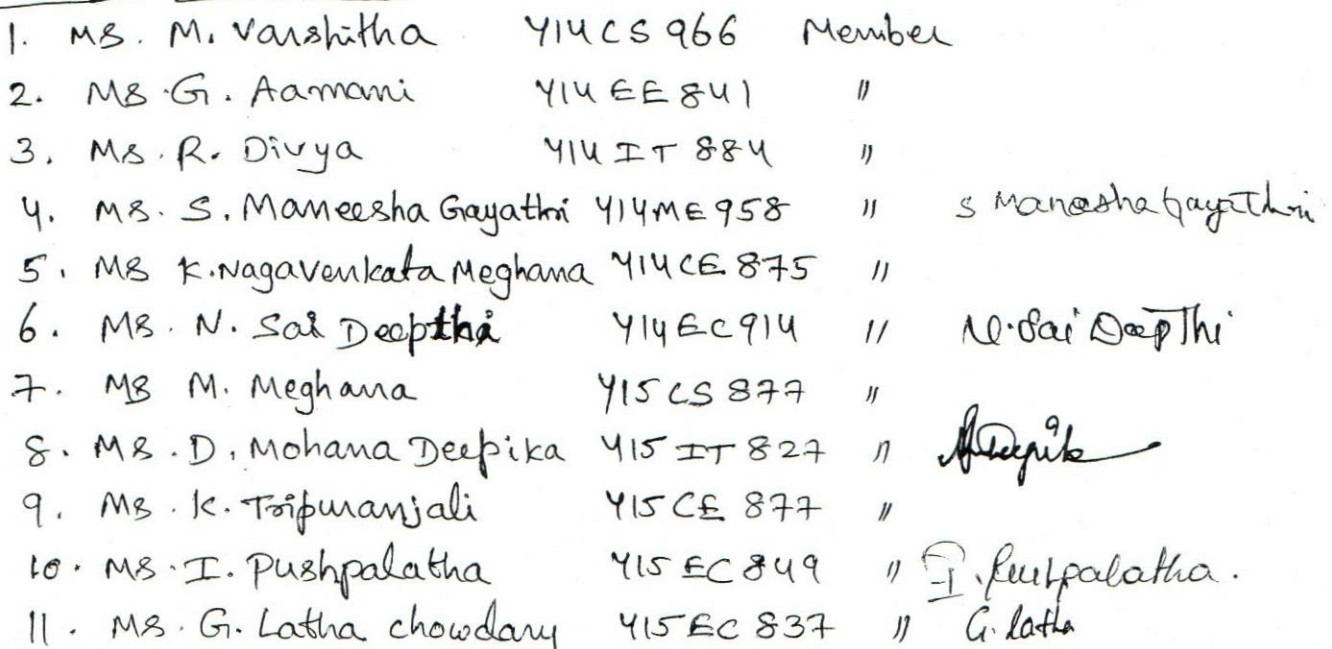 1. Ms. M. Varshitha Y14CS966 Member
2. Ms. G. Aamani Y14EE841 "
3. Ms. R. Divya Y14IT884 "
4. Ms. S. Maneesha Gayathri Y14ME958 " S Maneesha Gayathri
5. Ms K. Nagavenkata Meghana Y14CE875 "
6. Ms. N. Sai Deepthi Y14EC914 " N. Sai Deepthi
7. Ms M. Meghana Y15CS877 "
8. Ms. D. Mohana Deepika Y15IT827 "
9. Ms. K. Tripuranjali Y15CE877 "
10. Ms. I. Pushpalatha Y15EC849 " I. Pushpalatha.
11. Ms. G. Latha chowdary Y15EC837 " G. latha